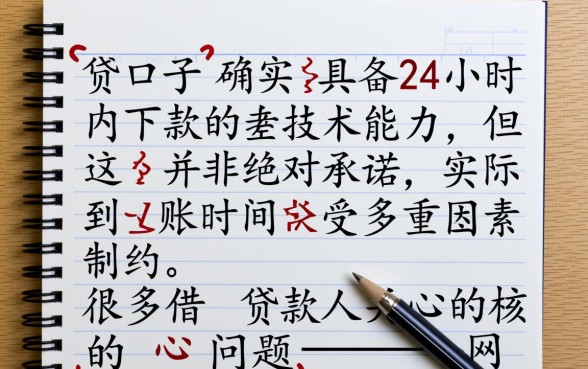 “贷口子”确实具备24小时
内下款的技术能力，但
这并非绝对承诺，实际
到账时间受多重因素
制约。
很多借 贷款人心的核
的 心 问题——网